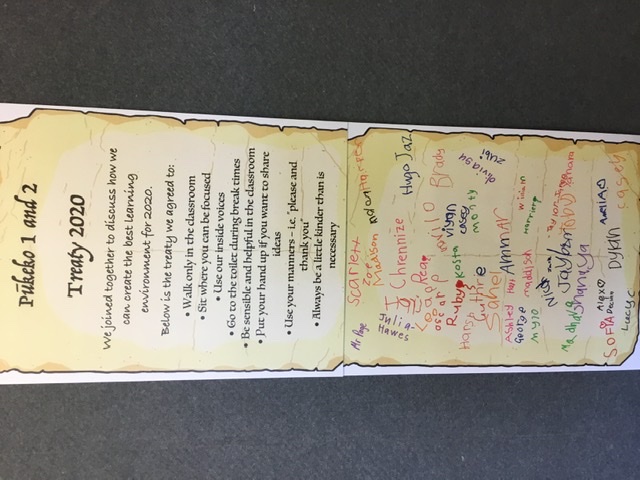 Pūkeko 1 and 2
Treaty 2020
We joined together to discuss how we
can create the best learning
environment for 2020.
Below is the treaty we agreed to:
• Walk only in the classroom
• Sit where you can be focused
• Use our inside voices
• Go to the toilet during break times
• Be sensible and helpful in the classroom
• Put your hand up if you want to share
ideas
• Use your manners – i.e. "please and
thank you"
• Always be a little kinder than is
necessary
Scarlett Harper
Zara
Madison Adan
Mr Page
Julia
Hawes
Chrennize Hugo Jaz
Brady
Zubi
Olivia
Oscar
Ruby Kosta viyan casey monty
Harsh
Guthrie
Sahel
Ashley Ammar
George
Mylo maddison
Nick
Jaybon
Shanaya
SOFIA Alex
Declan Dylan
Lucy C Casey